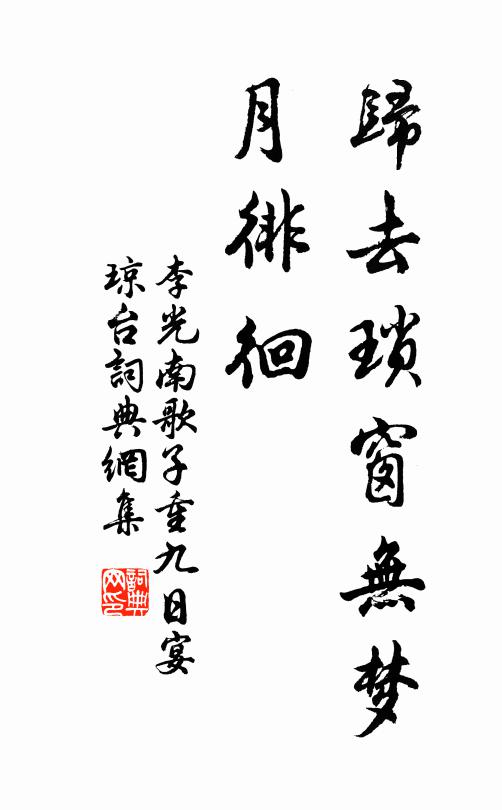 歸去瑣窗無梦
月徘徊
李光南歌子重九日宴
琼台詞典網集
詞典
网印